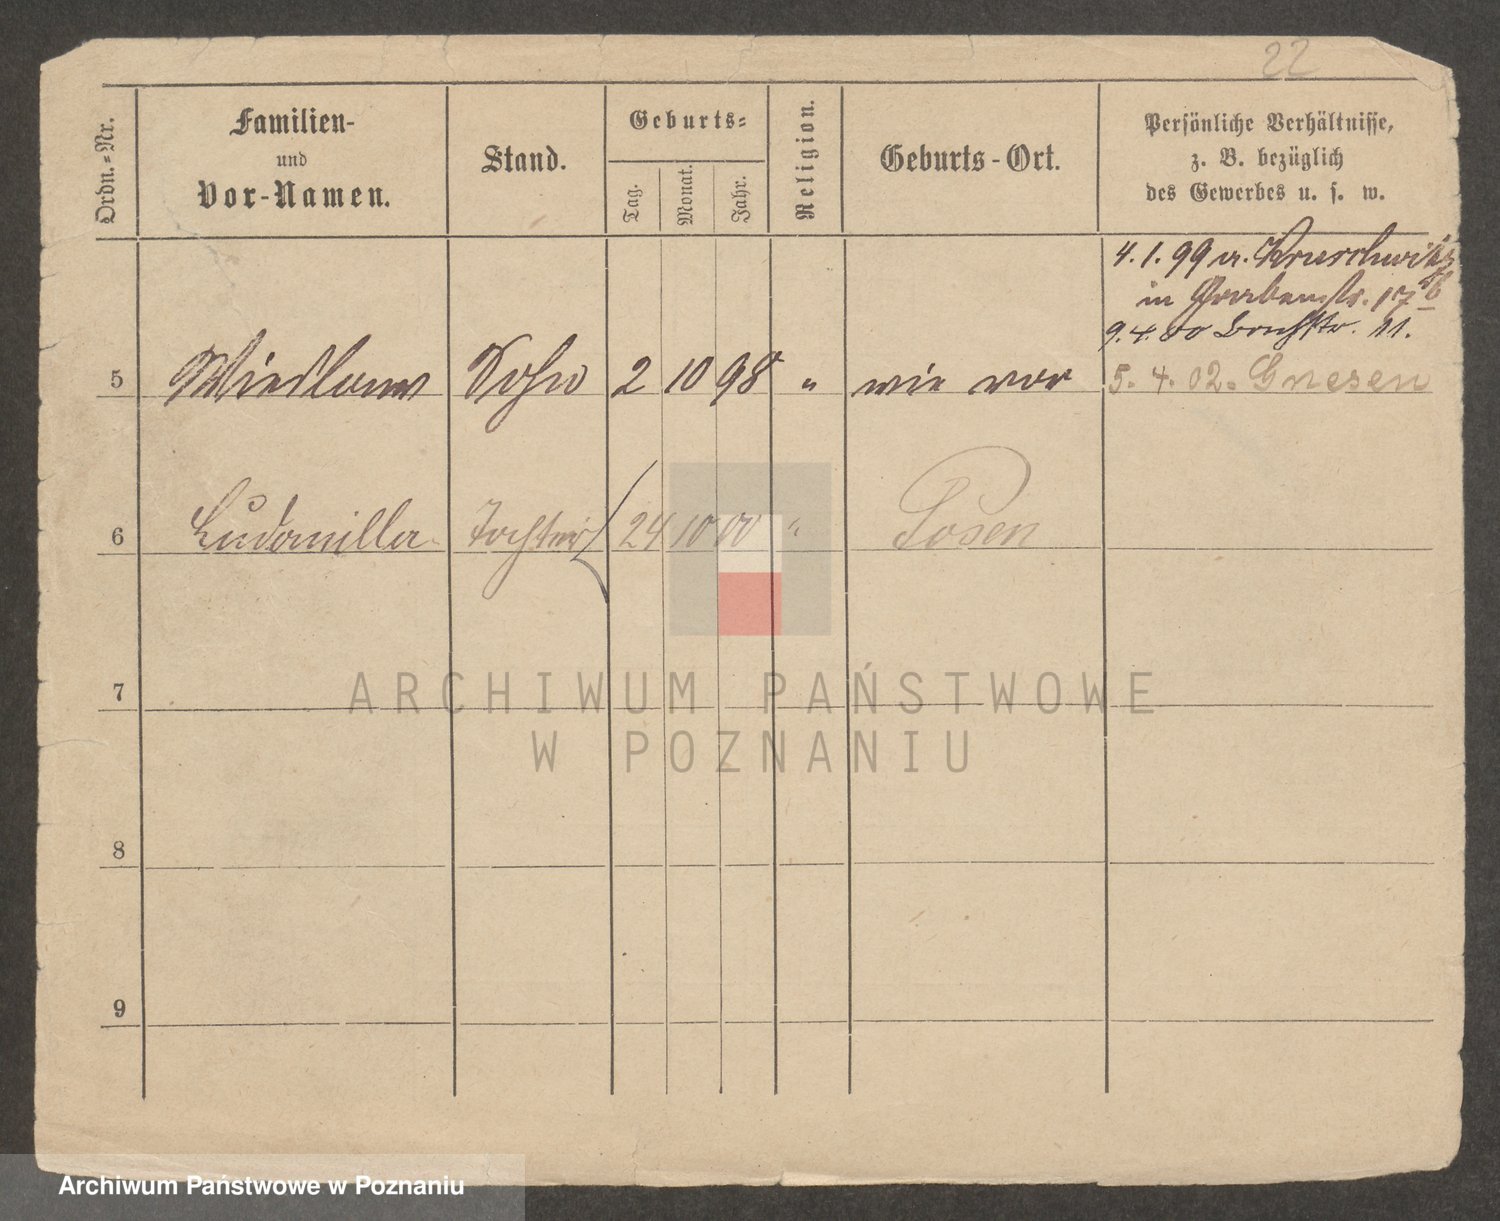 22
Ordn.-Nr.
Familien-
und
Vor-Namen.
Stand.
Geburts-
Tag.
Monat.
Jahr.
Religion.
Geburts-Ort.
Persönliche Verhältnisse,
z. B. bezüglich
des Gewerbes u. s. w.
4. 1. 99 a. Kruschwitz
in Grabenstr. 17 b
9. 4. 00 11.
5 Sohn 2 10 98 " wie vor 5. 4. 02. Gnesen
6 Ludomilla Tochter 24 10 00 " Posen
7
8
9
ARCHIWUM PAŃSTWOWE
W POZNANIU
Archiwum Państwowe w Poznaniu